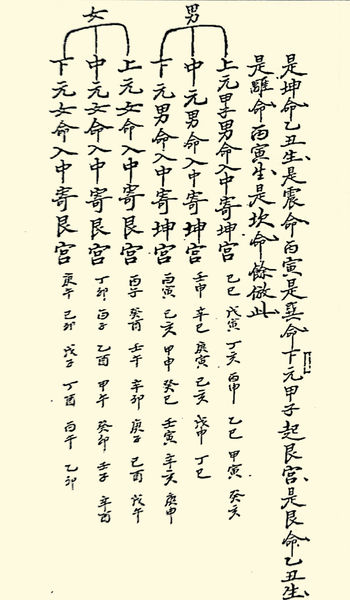 是坤命乙丑生是震命丙寅是巽命下元甲子起艮宮是艮命乙丑生
是離命丙寅生是坎命餘倣此
男
上元甲子男命入中寄坤宮 己巳 戊寅 丁亥 丙申 乙巳 甲寅 癸亥
中元男命入中寄坤宮 壬申 辛巳 庚寅 己亥 戊申 丁巳
下元男命入中寄坤宮 丙寅 乙亥 甲申 癸巳 壬寅 辛亥 庚申
女
上元女命入中寄艮宮 丙子 癸酉 壬午 辛卯 庚子 己酉 戊午
中元女命入中寄艮宮 丁卯 丙子 乙酉 甲午 癸卯 壬子 辛酉
下元女命入中寄艮宮 庚午 己卯 戊子 丁酉 丙午 乙卯